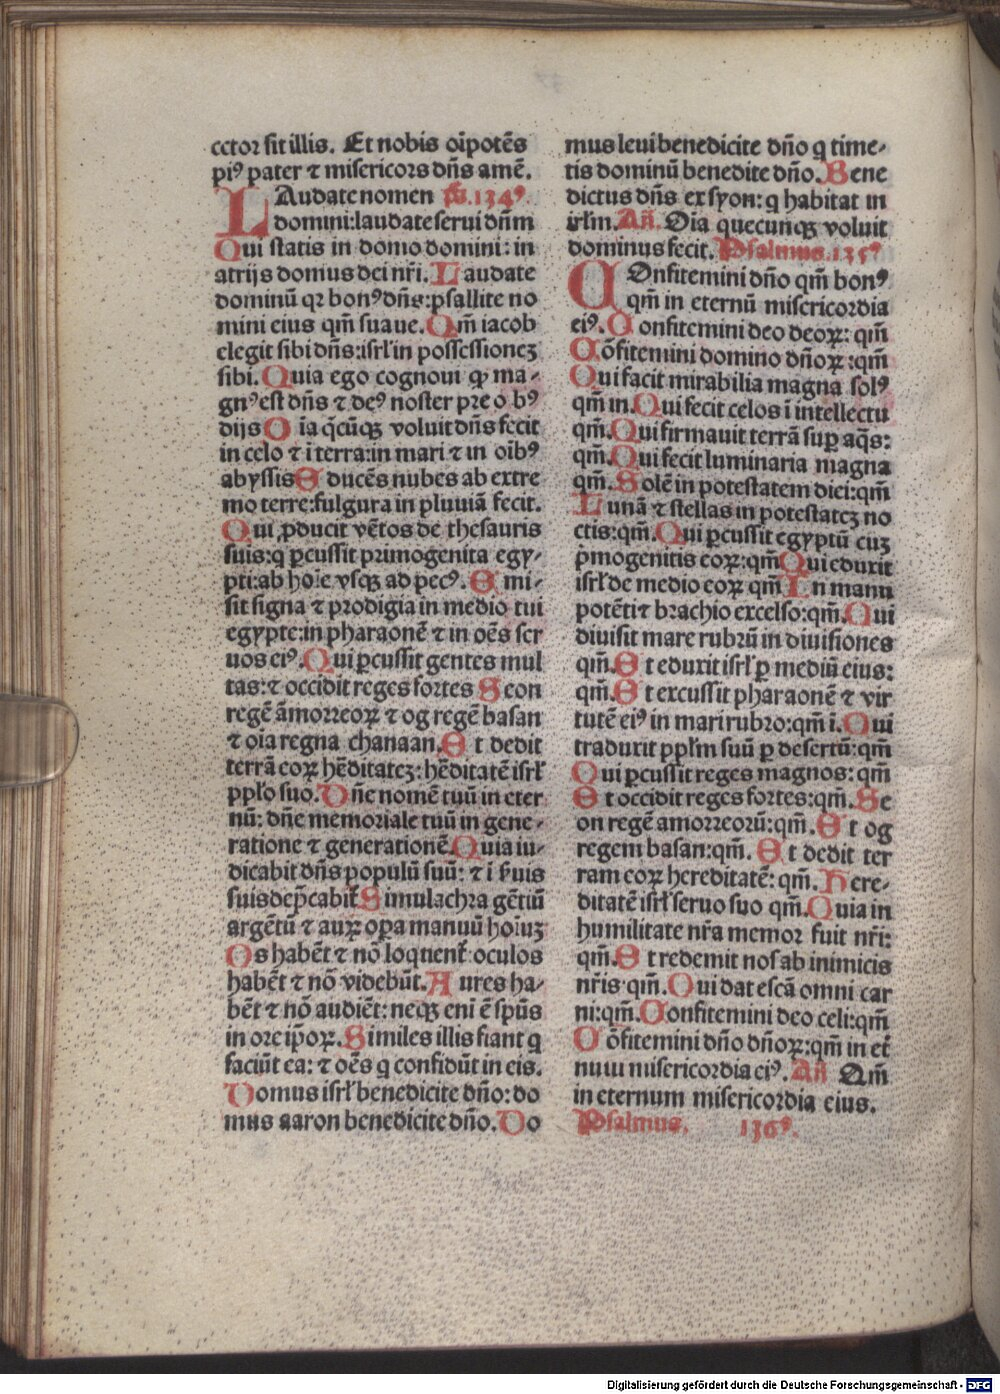 cctor sit illis. Et nobis oīpotēs
piꝰ pater ⁊ misericors dn̄s amē.
LAudate nomen p̄s. 134ꝰ.
domini: laudate serui dn̄m
Qui statis in domo domini: in
atrijs domus dei nr̄i. Laudate
dominū qꝛ bonꝰ dn̄s: psallite no
mini eius qm̄ suaue. Qm̄ iacob
elegit sibi dn̄s: isrl̄ in possessioneꝫ
sibi. Quia ego cognoui ꝙ ma⸗
gnꝰ est dn̄s ⁊ deꝰ noster pre oībꝰ
dijs Oīa q̄cūqꝫ voluit dn̄s fecit
in celo ⁊ ī terra: in mari ⁊ in oībꝰ
abyssis Educēs nubes ab extre
mo terre: fulgura in pluuiā fecit.
Qui ꝓducit vētos de thesauris
suis: q ꝑcussit primogenita egy⸗
pti: ab hoīe vsqꝫ ad pecꝰ. Emi⸗
sit signa ⁊ prodigia in medio tui
egypte: in pharaonē ⁊ in oēs ser
uos eiꝰ. Qui ꝑcussit gentes mul
tas: ⁊ occidit reges fortes Seon
regē āmorreoꝝ ⁊ og regē basan
⁊ oīa regna chanaan. Et dedit
terrā eoꝝ hēditateꝫ: hēditatē isrł
ppl̄o suo. Dn̄e nomē tuū in eter
nū: dn̄e memoriale tuū in gene⸗
ratione ⁊ generationē. Quia iu⸗
dicabit dn̄s populū suū: ⁊ ī ẜuis
suis dep̄cabit̄ Simulachra gētiū
argētū ⁊ auꝝ oꝑa manuū hoīuꝫ
Os habēt ⁊ nō loquent̄: oculos
habēt ⁊ nō videbūt. Aures ha⸗
bēt ⁊ nō audiēt: neqꝫ enī ē sp̄us
in ore ip̄oꝝ. Similes illis fiant q
faciūt ea: ⁊ oēs q confidūt in eis.
Domus isrł benedicite dn̄o: do
mus aaron benedicite dn̄o. Do
mus leui benedicite dn̄o q time⸗
tis dominū benedite dn̄o. Bene
dictus dn̄s ex syon: q habitat in
irl̄m. An̄. Oīa quecunqꝫ voluit
dominus fecit. Psalmus. 135ꝰ
COnfitemini dn̄o qm̄ bonꝰ
qm̄ in eternū misericordia
eiꝰ. Confitemini deo deoꝝ: qm̄
Cōfitemini domino dn̄oꝝ: qm̄
Qui facit mirabilia magna solꝰ
qm̄ in. Qui fecit celos ī intellectu
qm̄. Qui firmauit terrā suꝑ aq̄s:
qm̄. Qui fecit luminaria magna
qm̄. Solē in potestatem diei: qm̄
Lunā ⁊ stellas in potestateꝫ no
ctis: qm̄. Qui ꝑcussit egyptū cuꝫ
pͥmogenitis eoꝝ: qm̄ Qui eduxit
isrł de medio eoꝝ qm̄ In manu
potēti ⁊ brachio excelso: qm̄. Qui
diuisit mare rubrū in diuisiones
qm̄. Et eduxit isrł ꝑ mediū eius:
qm̄. Et excussit pharaonē ⁊ vir
tutē eiꝰ in mari rubro: qm̄ ī. Qui
traduxit ppl̄m suū ꝑ desertū: qm̄
Qui ꝑcussit reges magnos: qm̄
Et occidit reges fortes: qm̄. Se
on regē amorreorū: qm̄. Et og
regem basan: qm̄. Et dedit ter
ram eoꝝ hereditatē: qm̄. Here⸗
ditatē isrł seruo suo qm̄. Quia in
humilitate nr̄a memor fuit nr̄i:
qm̄. Et redemit nos ab inimicis
nr̄is qm̄. Qui dat escā omni car
ni: qm̄. Confitemini deo celi: qm̄
Cōfitemini dn̄o dn̄oꝝ: qm̄ in et̄
nuu misericordia eiꝰ. An̄ Qm̄
in eternum misericordia eius.
Psalmus. 136ꝰ.
Digitalisierung gefördert durch die Deutsche Forschungsgemeinschaft - DFG